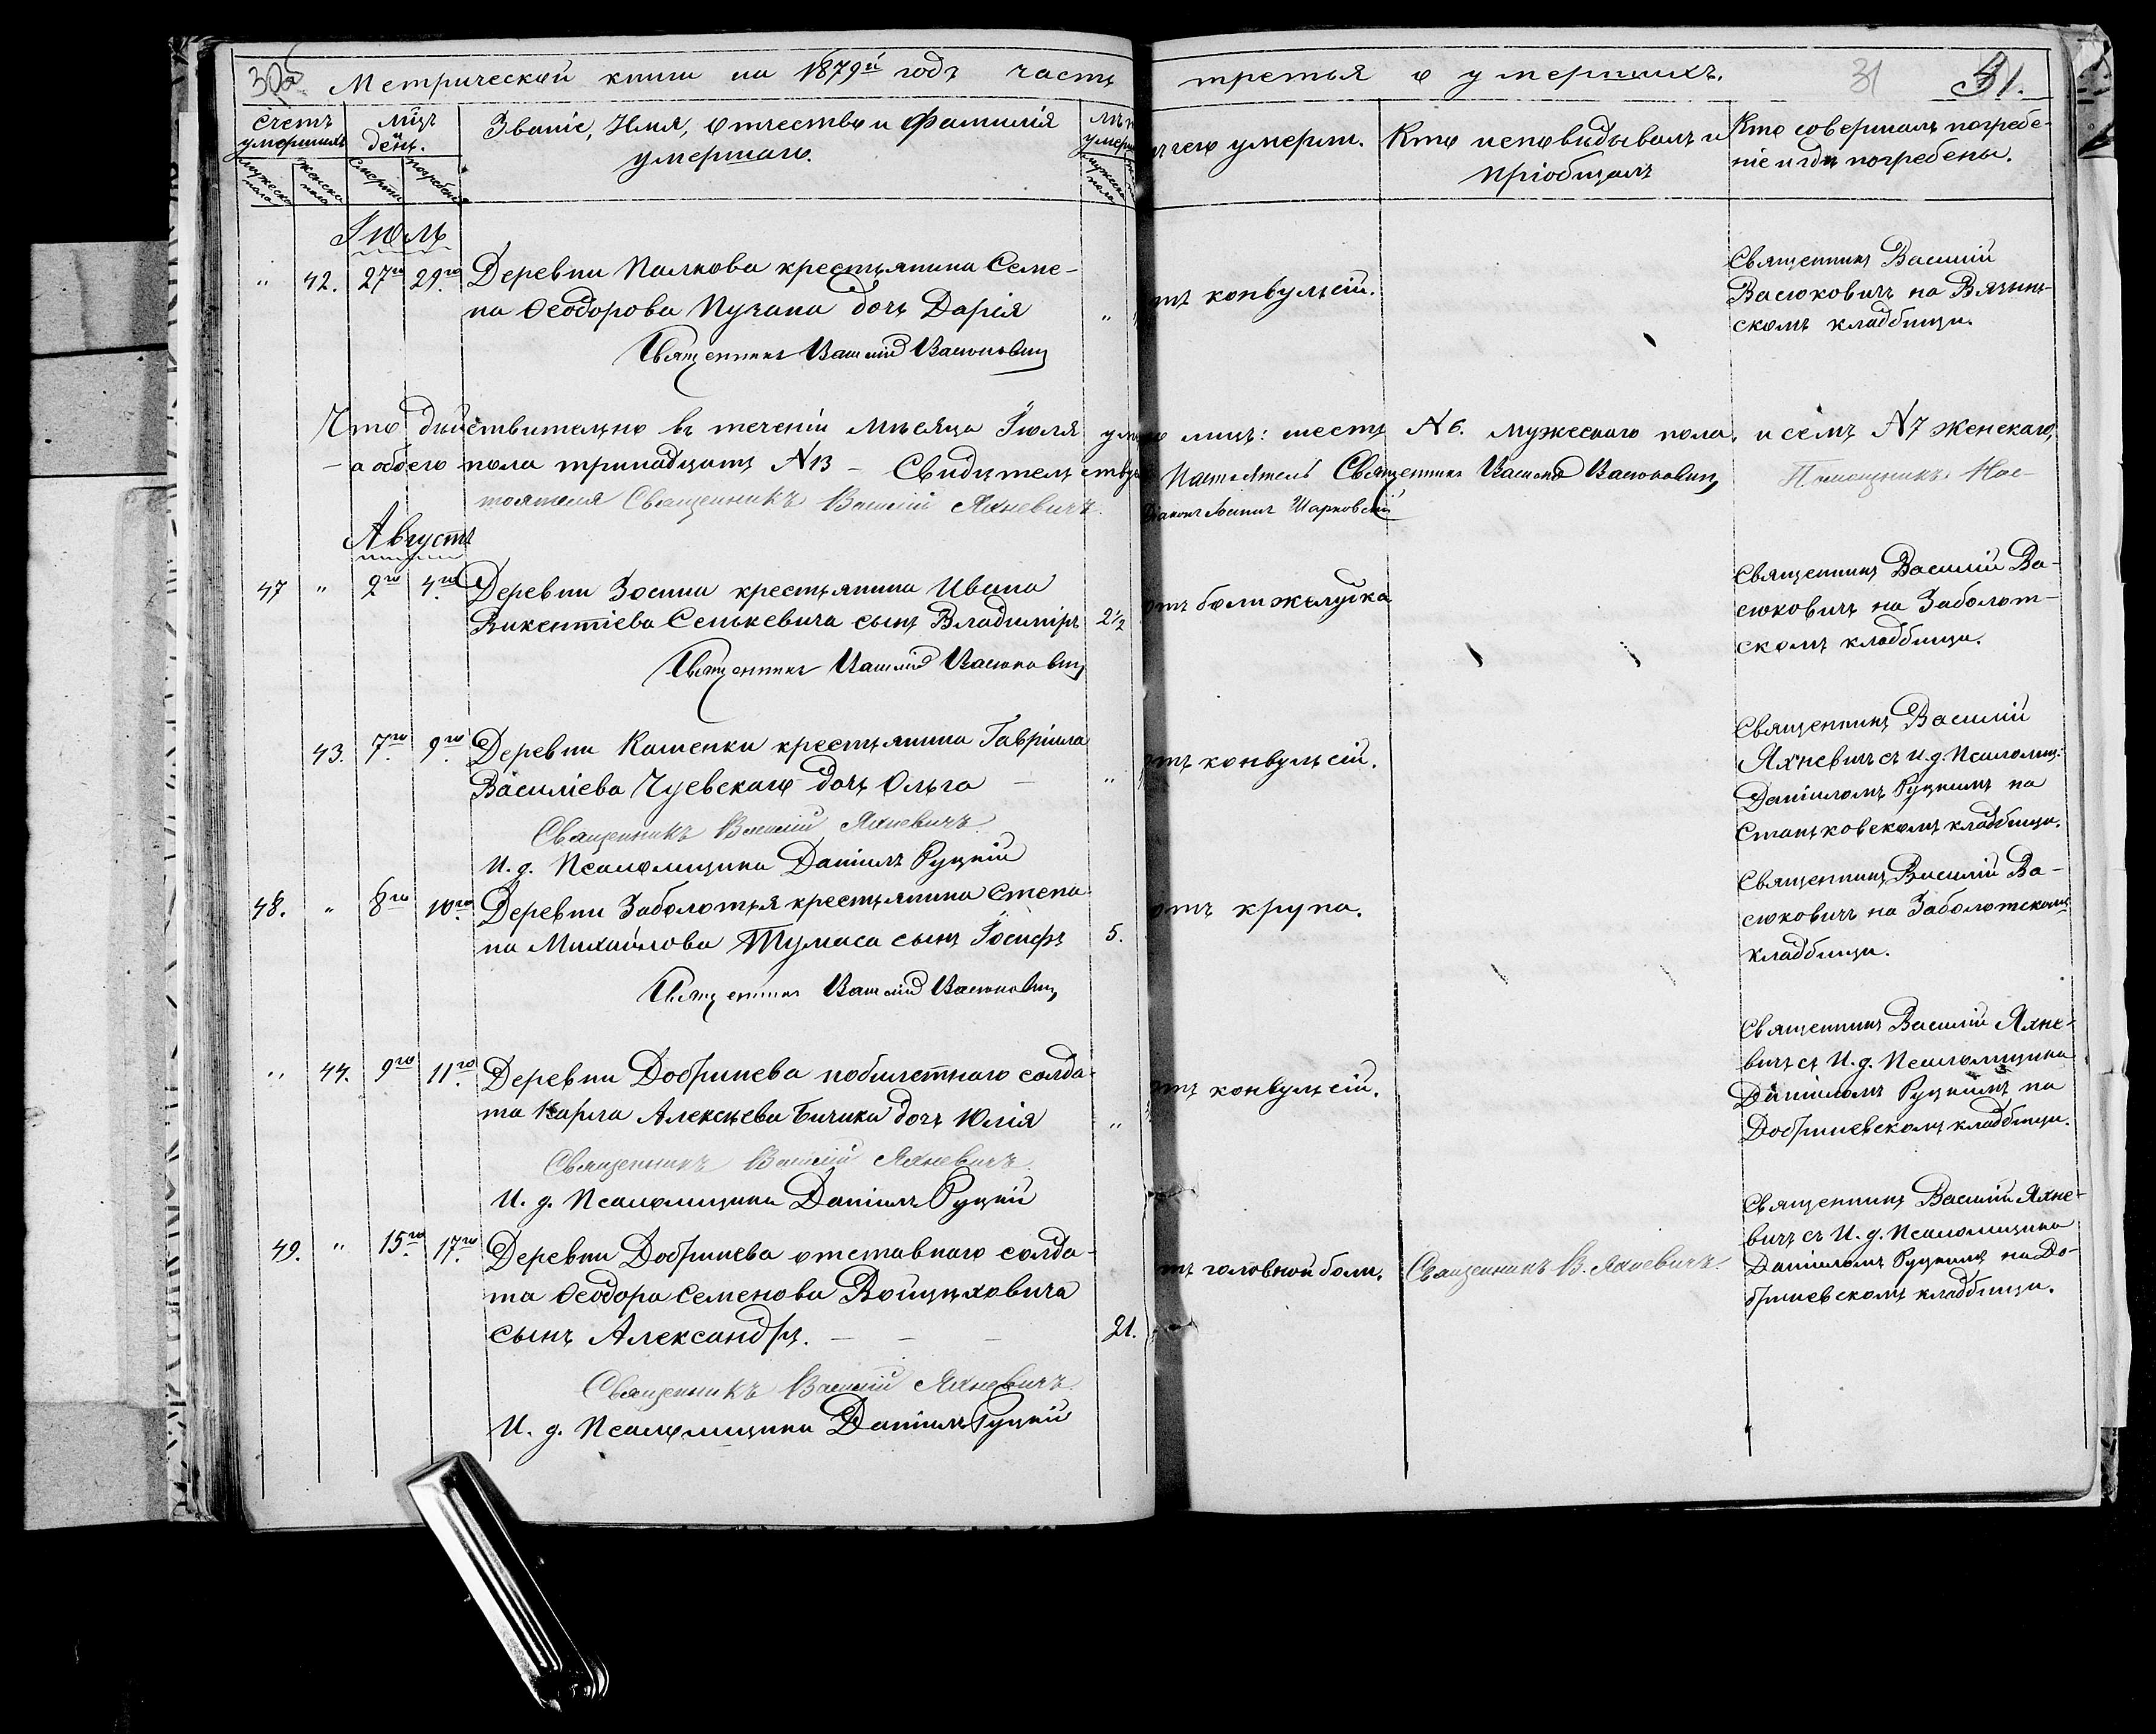 30об Метрической книги на 1879й годъ часть третья о умершихъ. 31 31.
Счетъ умершихъ
Мѣсяцъ и день.
Званіе, Имя, Отчество и Фамилія
умершаго.
Лѣта умерш
мужеска пола
женска пола
смерти
погребенія
мужеска пола
чего умерли.
Кто исповѣдывалъ и
пріобщалъ
Кто совершалъ погребе-
ніе и гдѣ погребены.
Іюль
" 42. 27го 29го Деревни Палкова крестьянина Семе-
на Ѳеодорова Пучана дочь Дарія "
Священникъ Василій Васюковичъ
отъ конвульсій.
Священникъ Василій
Васюковичъ на
скомъ кладбищѣ.
Что дѣйствительно въ теченіи мѣсяца Іюля умерло лицъ: шесть №6. мужескаго пола, и семь №7 женскаго,
– а обоего пола тринадцать №13 – Свидѣтельствуемъ Настоятель Священникъ Василій Васюковичъ Помощникъ Нас-
тоятеля Священникъ Василій Яхневичъ. Діаконъ Шарковскій
Августъ
47 " 2го 4го Деревни Зосина крестьянина Ивана
Викентіева Сенькевича сынъ Владиміръ 2½
Священникъ Василій Васюковичъ
отъ боли желудка
Священникъ Василій Ва-
сюковичъ на Заболот-
скомъ кладбищѣ.
43. 7го 9го Деревни Каменки крестьянина Гавріила
Василіева Чуевскаго дочь Ольга – "
Священникъ Василій Яхневичъ.
И. д. Псаломщика Даніилъ Руцкій
отъ конвульсій.
Священникъ Василій
Яхневичъ съ И. д. Псаломщ.
Даніиломъ Руцкимъ на
Станьковскомъ кладбищѣ.
48. " 8го 10го Деревни Заболотья крестьянина Степа-
на Михайлова Тумаса сынъ Іосифъ 5.
Священникъ Василій Васюковичъ
отъ крупа.
Священникъ Василій Ва-
сюковичъ на Заболотскомъ
кладбищѣ.
" 44. 9го 11го Деревни Добринева побилетнаго солда-
та Карла Алексѣева Бичика дочь Юлія "
Священникъ Василій Яхневичъ.
И. д. Псаломщика Даніилъ Руцкій
отъ конвульсій.
Священникъ Василій Яхне-
вичъ съ И. д. Псаломщика
Даніиломъ Руцкимъ на
Добриневскомъ кладбищѣ.
49. " 15го 17го Деревни Добринева отставнаго солда-
та Ѳеодора Семенова Войцѣховича
сынъ Александръ. – – – 21.
Священникъ Василій Яхневичъ.
И. д. Псаломщика Даніилъ Руцкій
отъ головной боли.
Священникъ В. Яхневичъ.
Священникъ Василій Яхне-
вичъ съ И. д. Псаломщика
Даніиломъ Руцкимъ на До-
бриневскомъ кладбищѣ.